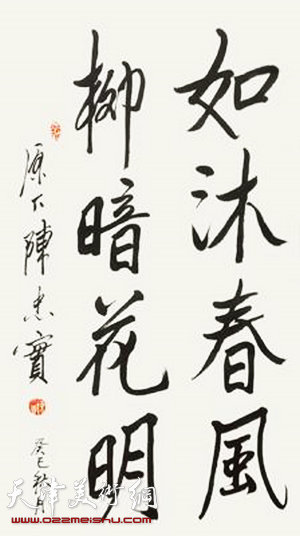 如沐春風
柳暗花明
原下陳忠實
癸巳秋月
天津美術網
www.022meishu.com